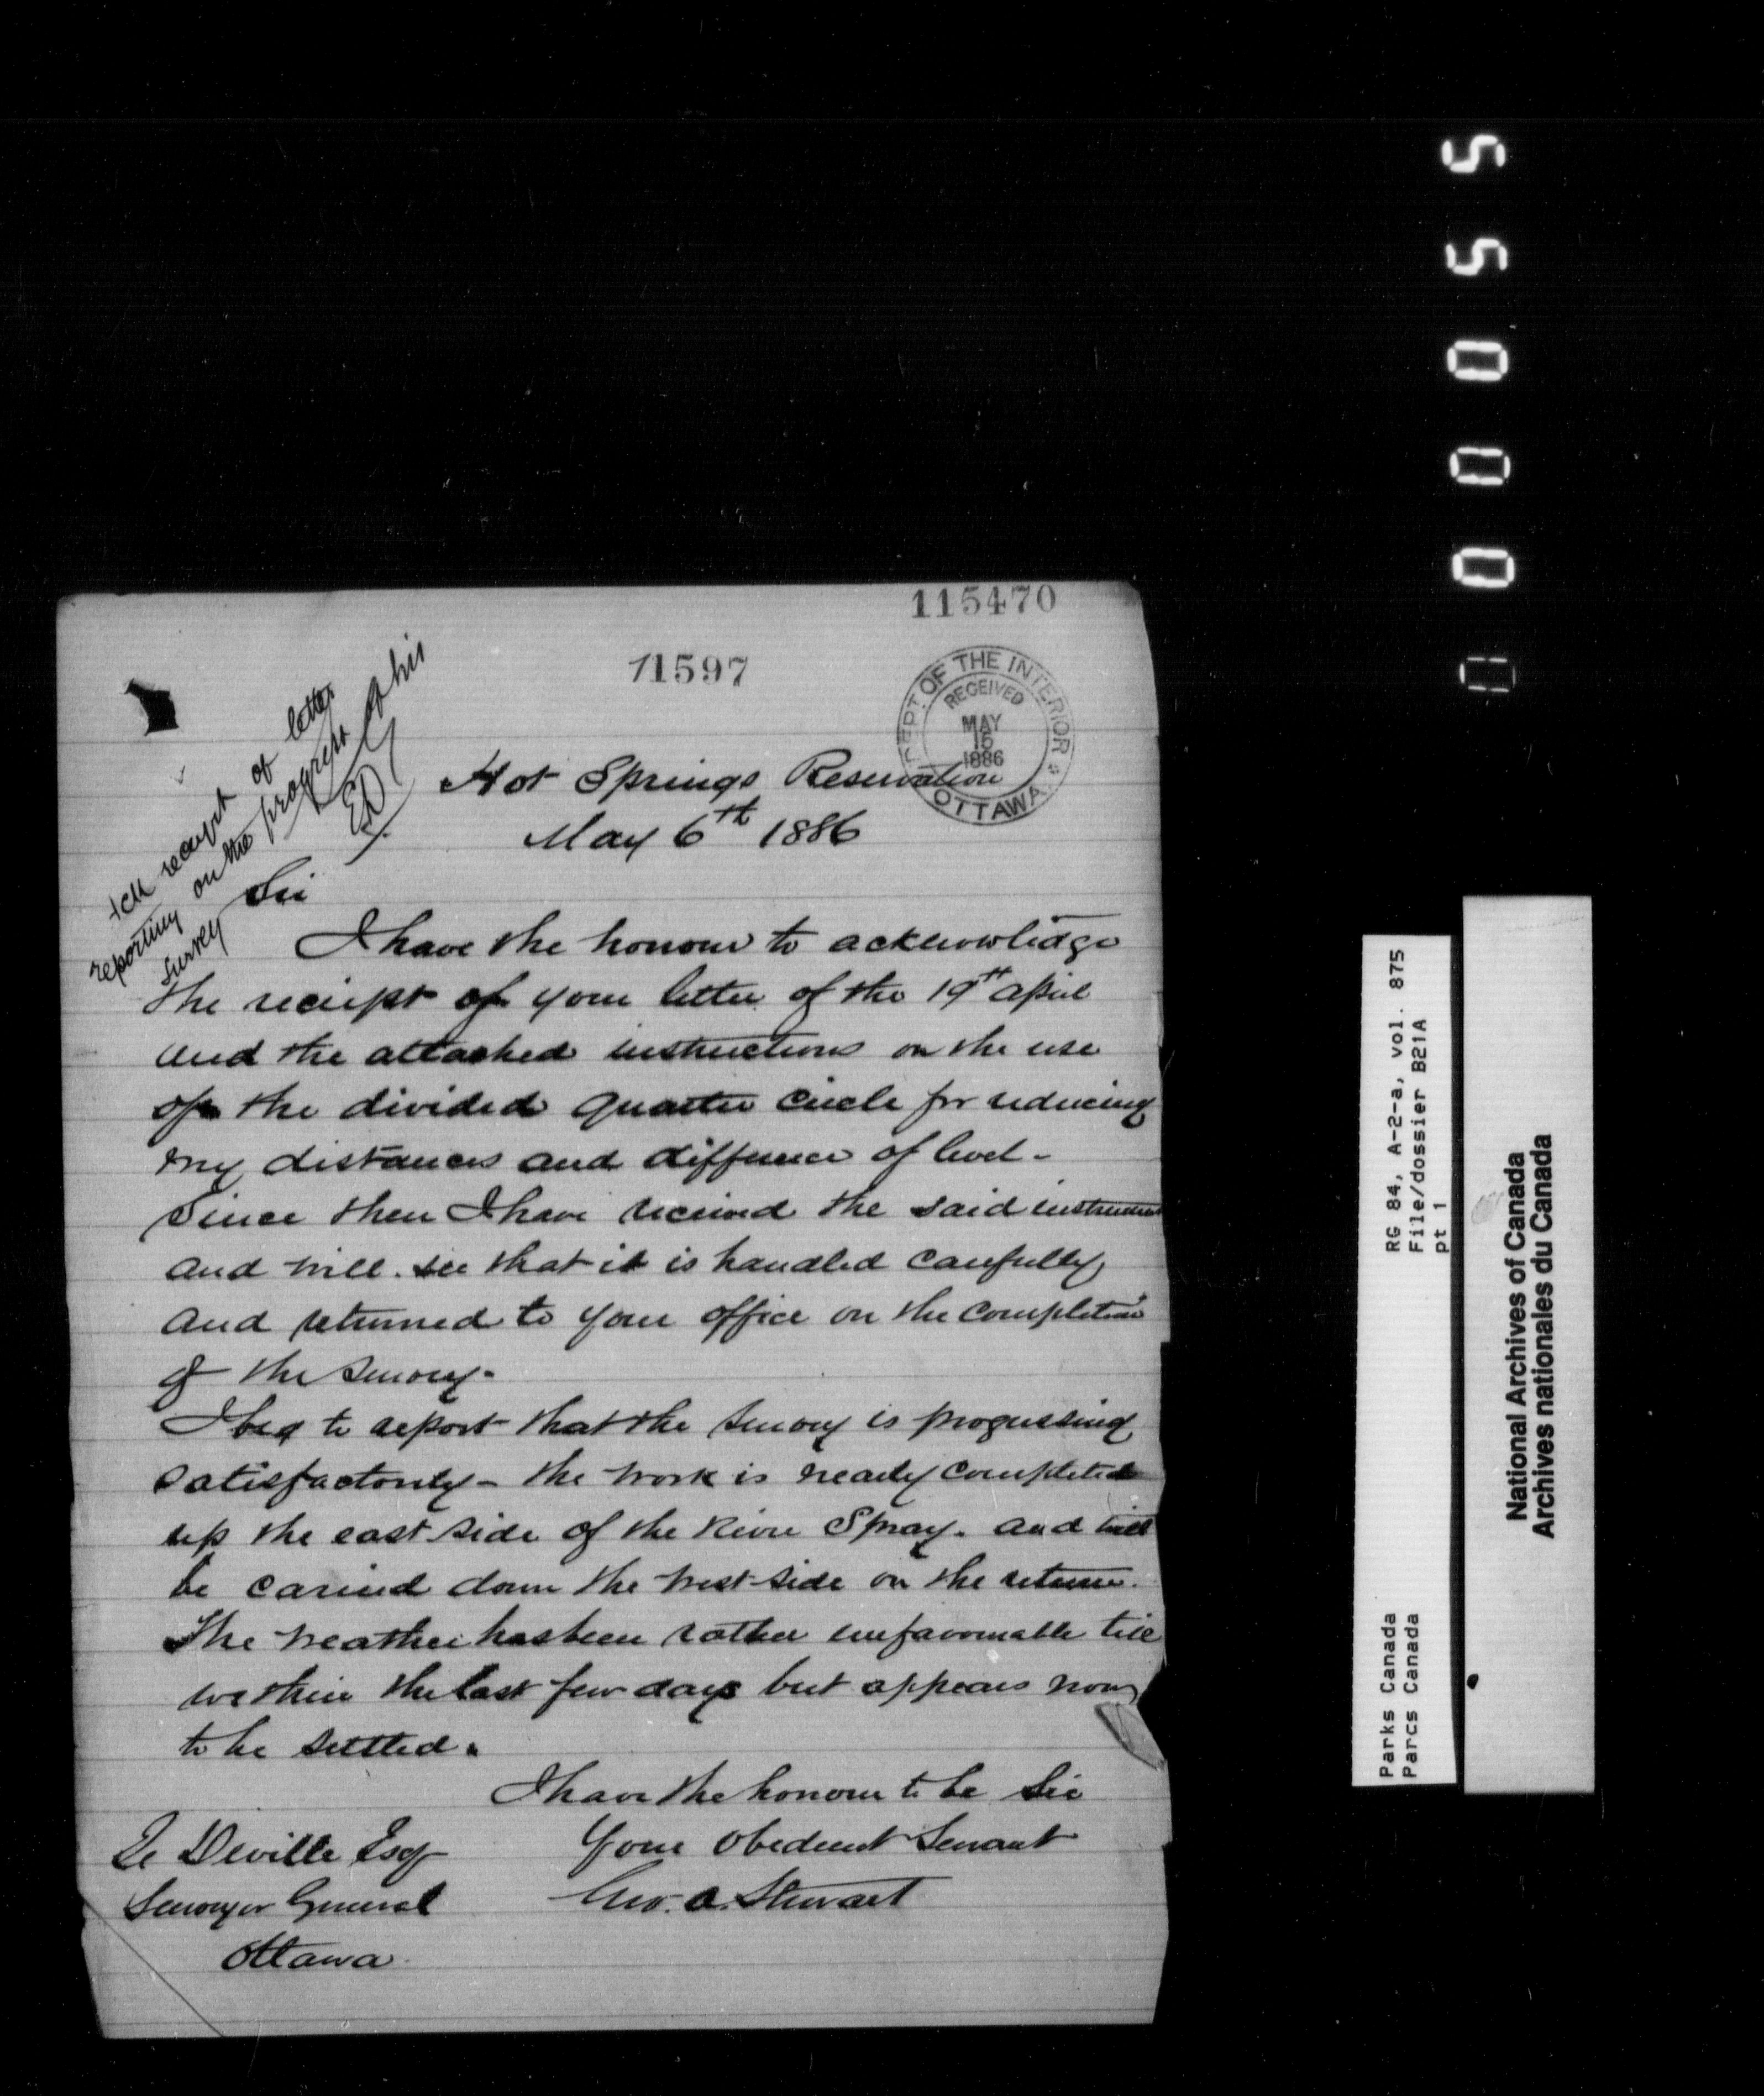 115470
71597
DEPT. OF THE INTERIOR
RECEIVED
MAY
15
1886
OTTAWA
receipt of letter
reporting on the progress of his
survey
ED
Hot Springs Reservation
May 6th 1886
Sir
I have the honour to acknowledge
the receipt of your letter of the 19th April
and the attached instructions on the use
of the divided quarter circle for reducing
my distances and difference of level -
Since then I have received the said instrument
and will see that it is handled carefully
and returned to your office on the completion
of the survey -
I beg to report that the survey is progressing
satisfactorily - the work is nearly completed
up the east side of the River Spray. and will
be carried down the west side on the return.
The weather has been rather unfavourable till
within the last few days but appears now
to be settled.
I have the honour to be Sir
Your Obedient Servant
Geo. A. Stewart
Deville Esq
Surveyor General
Ottawa
000055
RG 84, A-2-a, vol. 875
File/dossier B21A
pt 1
Parks Canada
Parcs Canada
National Archives of Canada
Archives nationales du Canada